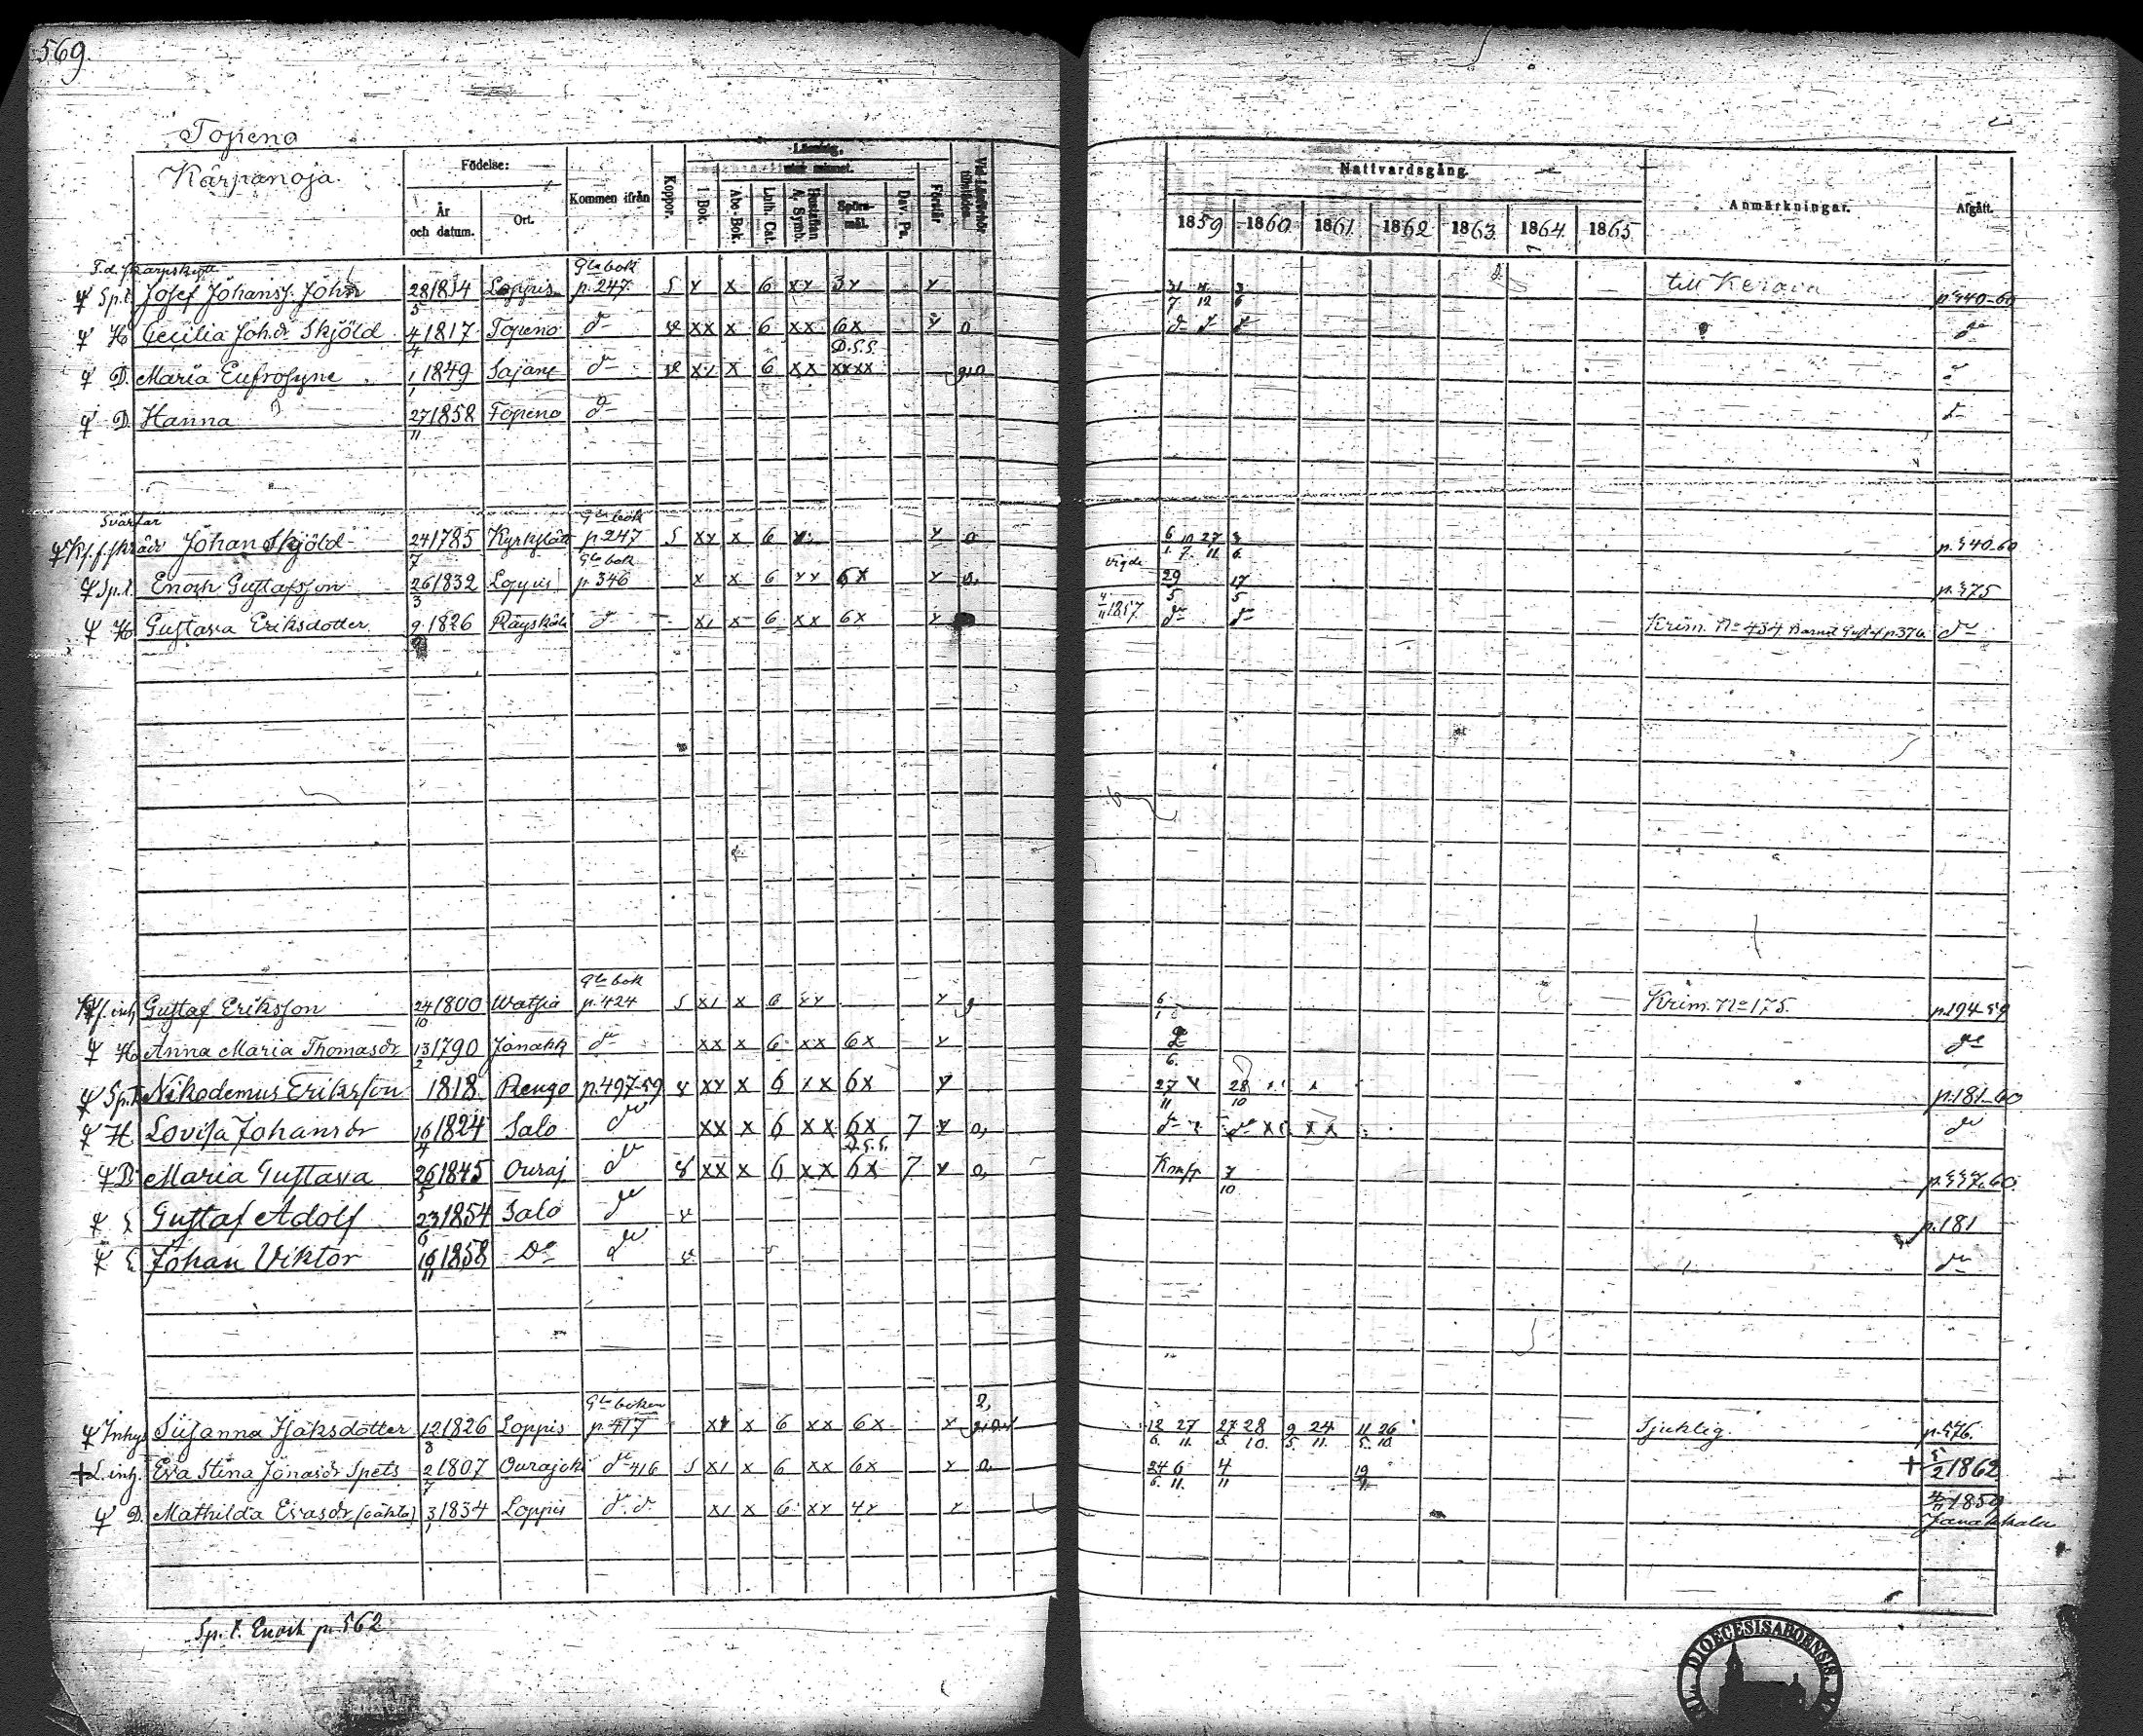 569.
Topeno
Kärpänoja.
Födelse:
År och datum.
Ort.
Kommen ifrån
Koppor.
I. Bok.
Abc-Bok.
Luth. Cat.
Hustaflan A. Symb.
Spörsmål.
Dav. Ps.
Förstår
Nattvardsgång.
1859 1860 1861 1862 1863 1864 1865
Anmärkningar.
Afgått.
F.d. skarpskytt Gla bok
Sp.t. Josef Johanss. John 28/5 1834 Loppis p. 247. S x x 6 xx 3x x 31/7 3/6 till Kerava p. 540-60
H Cecilia Joh.dr Skjöld 4/4 1817 Topeno d:o v xx x 6 xx 6x x 0 d:o d:o d:o d:o
D.S.S.
D. Maria Eufrosyne 1/1 1849 Sajane d:o v xx x 6 xx xxxx d:o
D. Hanna 27/11 1858 Topeno d:o d:o
Svärfar Gla bok
Johan Skjöld 24/7 1785 Kyrkslätt p. 247 S xx x 6 x 0 6/1 10/7 27/11 3/6 p. 540-60
Gla bok
Sp.t. Enoch Gustafsson 26/3 1832 Loppis p. 346 x x 6 xx 6x x 0, vigde 29/5 17/5 p. 575
H Gustava Eriksdotter 9 1826 Räyskälä d:o xx x 6 xx 6x x 4/11 1857. d:o d:o Krim. No 434 Barnet Gustaf p. 376. d:o
Gla bok
inh. Gustaf Eriksson 24/10 1800 Watsia p. 424 S xx x 6 xx x 6/1 Krim. No 175. p. 194-59
H Anna Maria Thomasdr 13/2 1790 Janakk d:o xx x 6 xx 6x x d:o d:o
Sp.t. Nikodemus Eriksson 1818. Rengo p. 497-59 v xx x 6 xx 6x x 27/11 28/10 p. 181-60
H Lovisa Johansdr 16/4 1824 Salo d:o xx x 6 xx 6x 7 x 0, d:o d:o d:o
D.S.S.
D Maria Gustava 26/5 1845 Ouraj d:o v xx x 6 xx 6x 7 x 0, 7/10 p. 557-60.
S Gustaf Adolf 23/6 1854 Salo d:o v p. 181
S Johan Viktor 19/11 1858 D:o d:o v d:o
Gla boken
Inhys Susanna Isaksdotter 12/3 1826 Loppis p. 417 xx x 6 xx 6x x 12/6 27/11 27/5 28/10. 9/5 24/11. 11/5 26/10 Sjuklig. p. 576.
L. inh. Eva Stina Jonasdr Spets 2/7 1807 Ourajoki d:o 416 S xx x 6 xx 6x x 0, 24/6 6/11. 4/11 † 5/2 1862
D. Mathilda Evasdr (oäkta) 3/1 1834 Loppis d:o d:o xx x 6 xx 4x x 4/11 1859 Janakkala
Sp. t. Enoch p. 562
DIOECESIS ABOENSIS